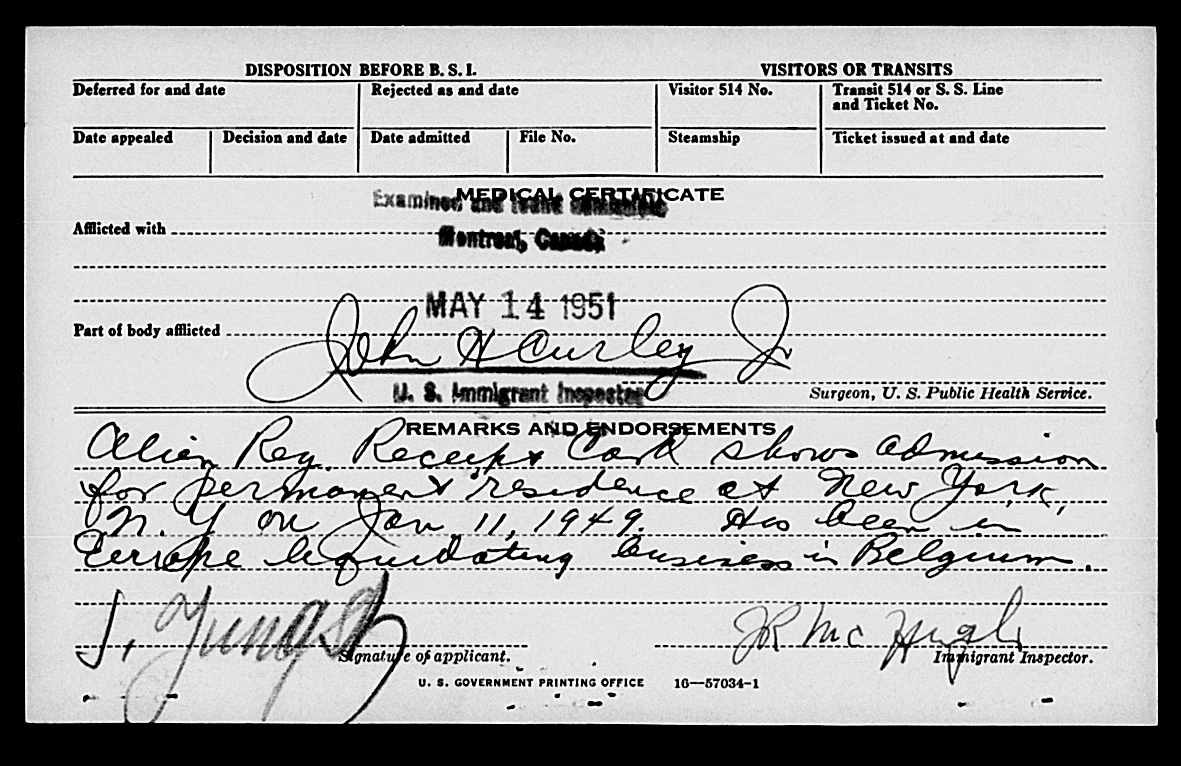 DISPOSITION BEFORE B. S. I.
VISITORS OR TRANSITS
Deferred for and date
Rejected as and date
Visitor 514 No.
Transit 514 or S. S. Line
and Ticket No.
Date appealed
Decision and date
Date admitted
File No.
Steamship
Ticket issued at and date
MEDICAL CERTIFICATE
Examined and
Afflicted with
Montreal, Canada
MAY 14 1951
Part of body afflicted
John H Curley Jr
U. S. Immigrant Inspector
Surgeon, U. S. Public Health Service.
REMARKS AND ENDORSEMENTS
Alien Reg. Receipt Card shows admission
for permanent residence at New York,
N. Y on Jan 11, 1949. Has been in
Europe liquidating business in Belgium.
JR McHugh
Signature of applicant.
Immigrant Inspector.
U. S. GOVERNMENT PRINTING OFFICE 16—57034-1